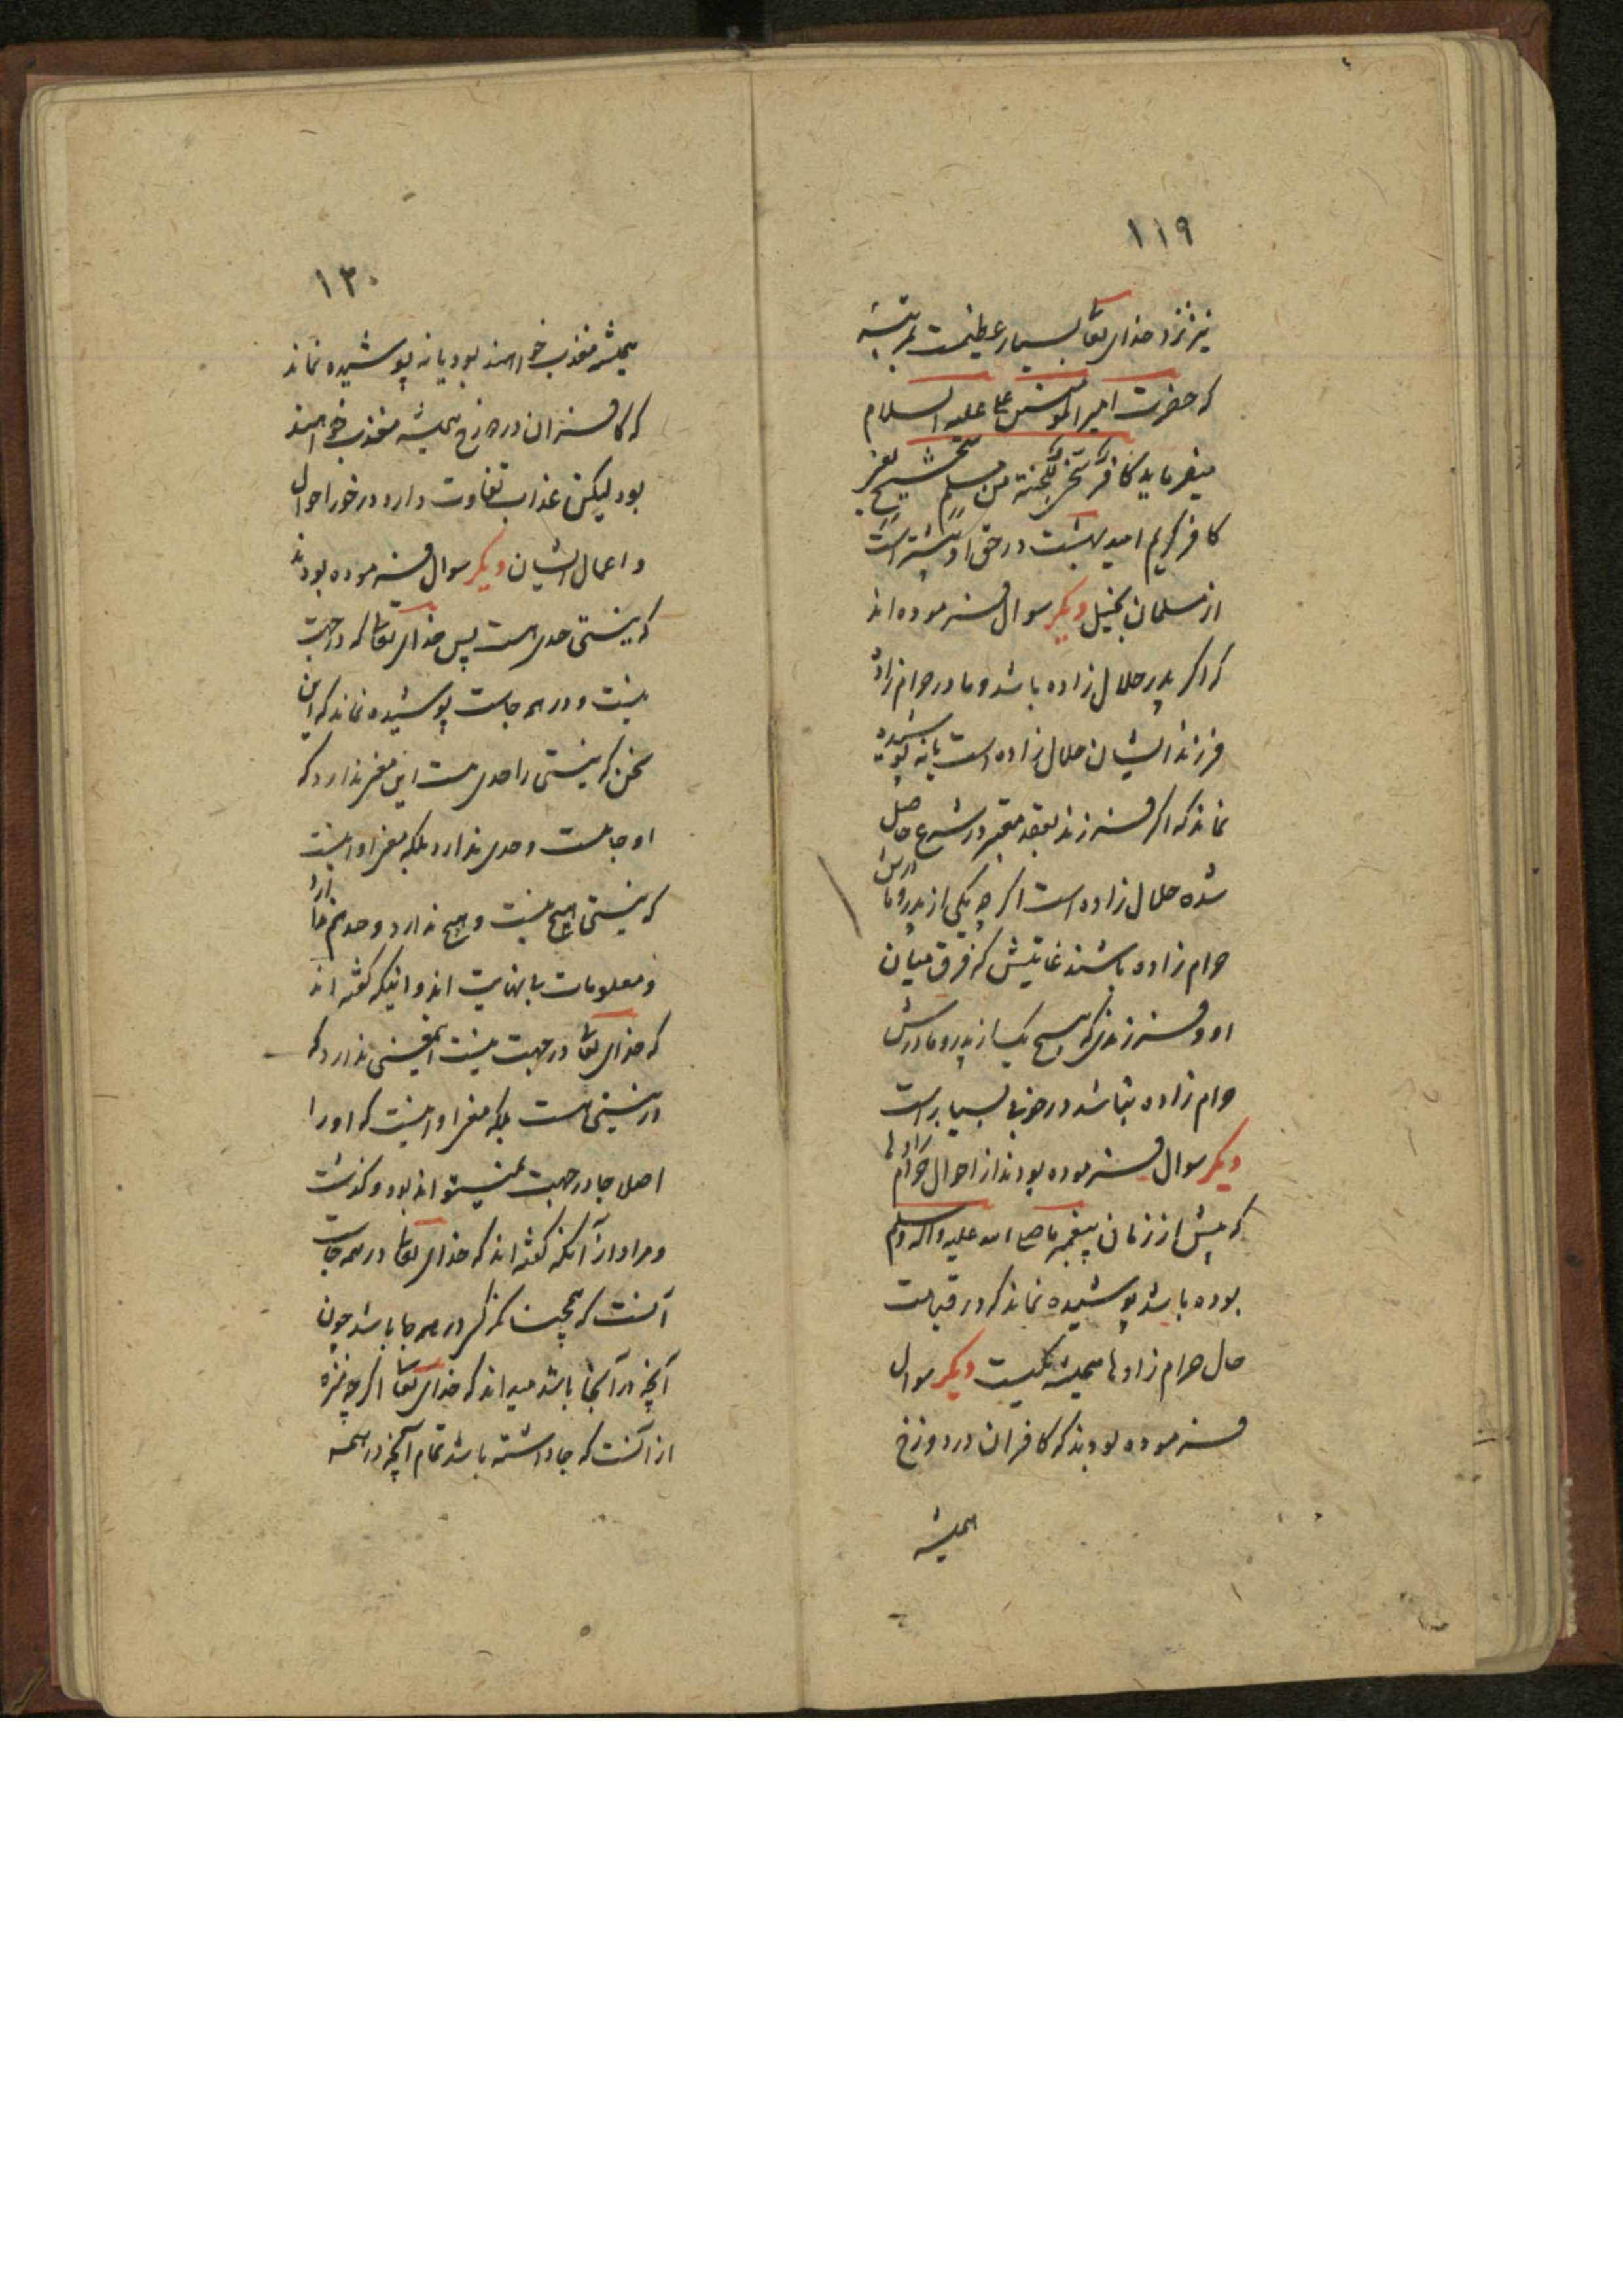 ۱۱۹
نیز نزد خدای تعا بسیار عظیمست بمرتبهٔ
که حضرت امیر المومنین علی علیه السلام
میفرماید کافر سخی للجنة من مسلم شحیح یعنی
کافر کریم امید بهشت در حق او بیشتر است
از مسلمان بخیل دیکر سوال فرموده اند
که اکر پدر حلال زاده باشد و مادر حرام زاده
فرزند ایشان حلال زاده است یا نه پوشیده
نماند که اکر فرزند بعقد معتبر در شرع حاصل
شده حلال زاده است اکر چه یکی از پدر و مادرش
حرام زاده باشند غایتش که فرق میان
او و فرزندی که هیچ یک از پدر و مادرش
حرام زاده نباشد در خوبی بسیار است
دیکر سوال فرموده بودند از احوال حرام زادها
که پیش از زمان پیغمبر ما صلی الله علیه و اله وسلم
بوده باشد پوشیده نماند که در قیامت
حال حرام زادها همیشه یکیست دیکر سوال
فرموده بودند که کافران در دوزخ
همیشه
۱۲۰
همیشه معذب خواهند بود یا نه پوشیده نماند
که کافران در دوزخ همیشه معذب خواهند
بود لیکن عذاب تفاوت دارد در خور احوال
و اعمال ایشان دیکر سوال فرموده بودند
که نیستی حدی هست پس خدای تعا که در جهت
نیست و در همه جاست پوشیده نماند که این
سخن که نیستی را حدی هست این معنی ندارد که
او جاهست و حدی ندارد بلکه معنی او اینست
که نیستی هیچ نیست و هیچ ندارد و حد هم ندارد
و معلومات بی نهایت اند و اینکه کفته اند
که خدای تعا در جهت نیست این معنی ندارد که
در نیستی هست بلکه معنی او اینست که او را
اصل جا و جهت نمیتواند بود و کذشت
و مراد از آنکه کفته اند که خدای تعا در همه جاست
آنست که همچنانکه کسی در همه جا باشد چون
آنچه در آنجا باشد میداند که خدای تعا اکر چه منزه
از آنست که جا داشته باشد تمام آنچه در همه